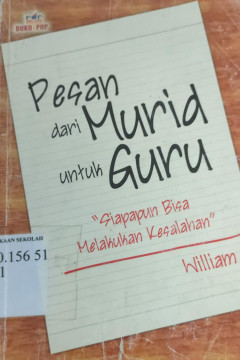 BUKU-POP
Pesan
dari Murid
untuk Guru
"Siapapun Bisa
Melakukan Kesalahan"
William
KAAN SEKOLAH
0.156 51
1